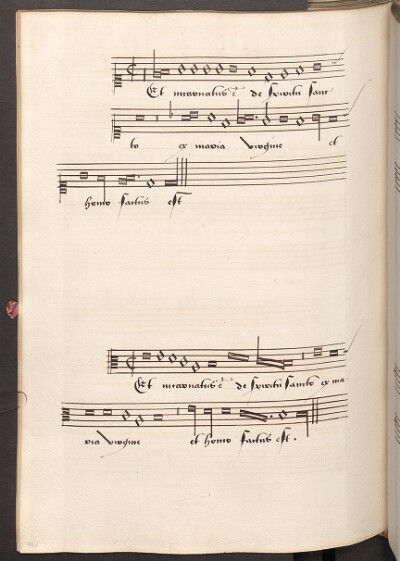 Et incarnatus ē de spiritu sanc
to ex maria virgine et
homo factus est
Et incarnatus ē de spiritu sancto ex ma
ria virgine et homo factus est.